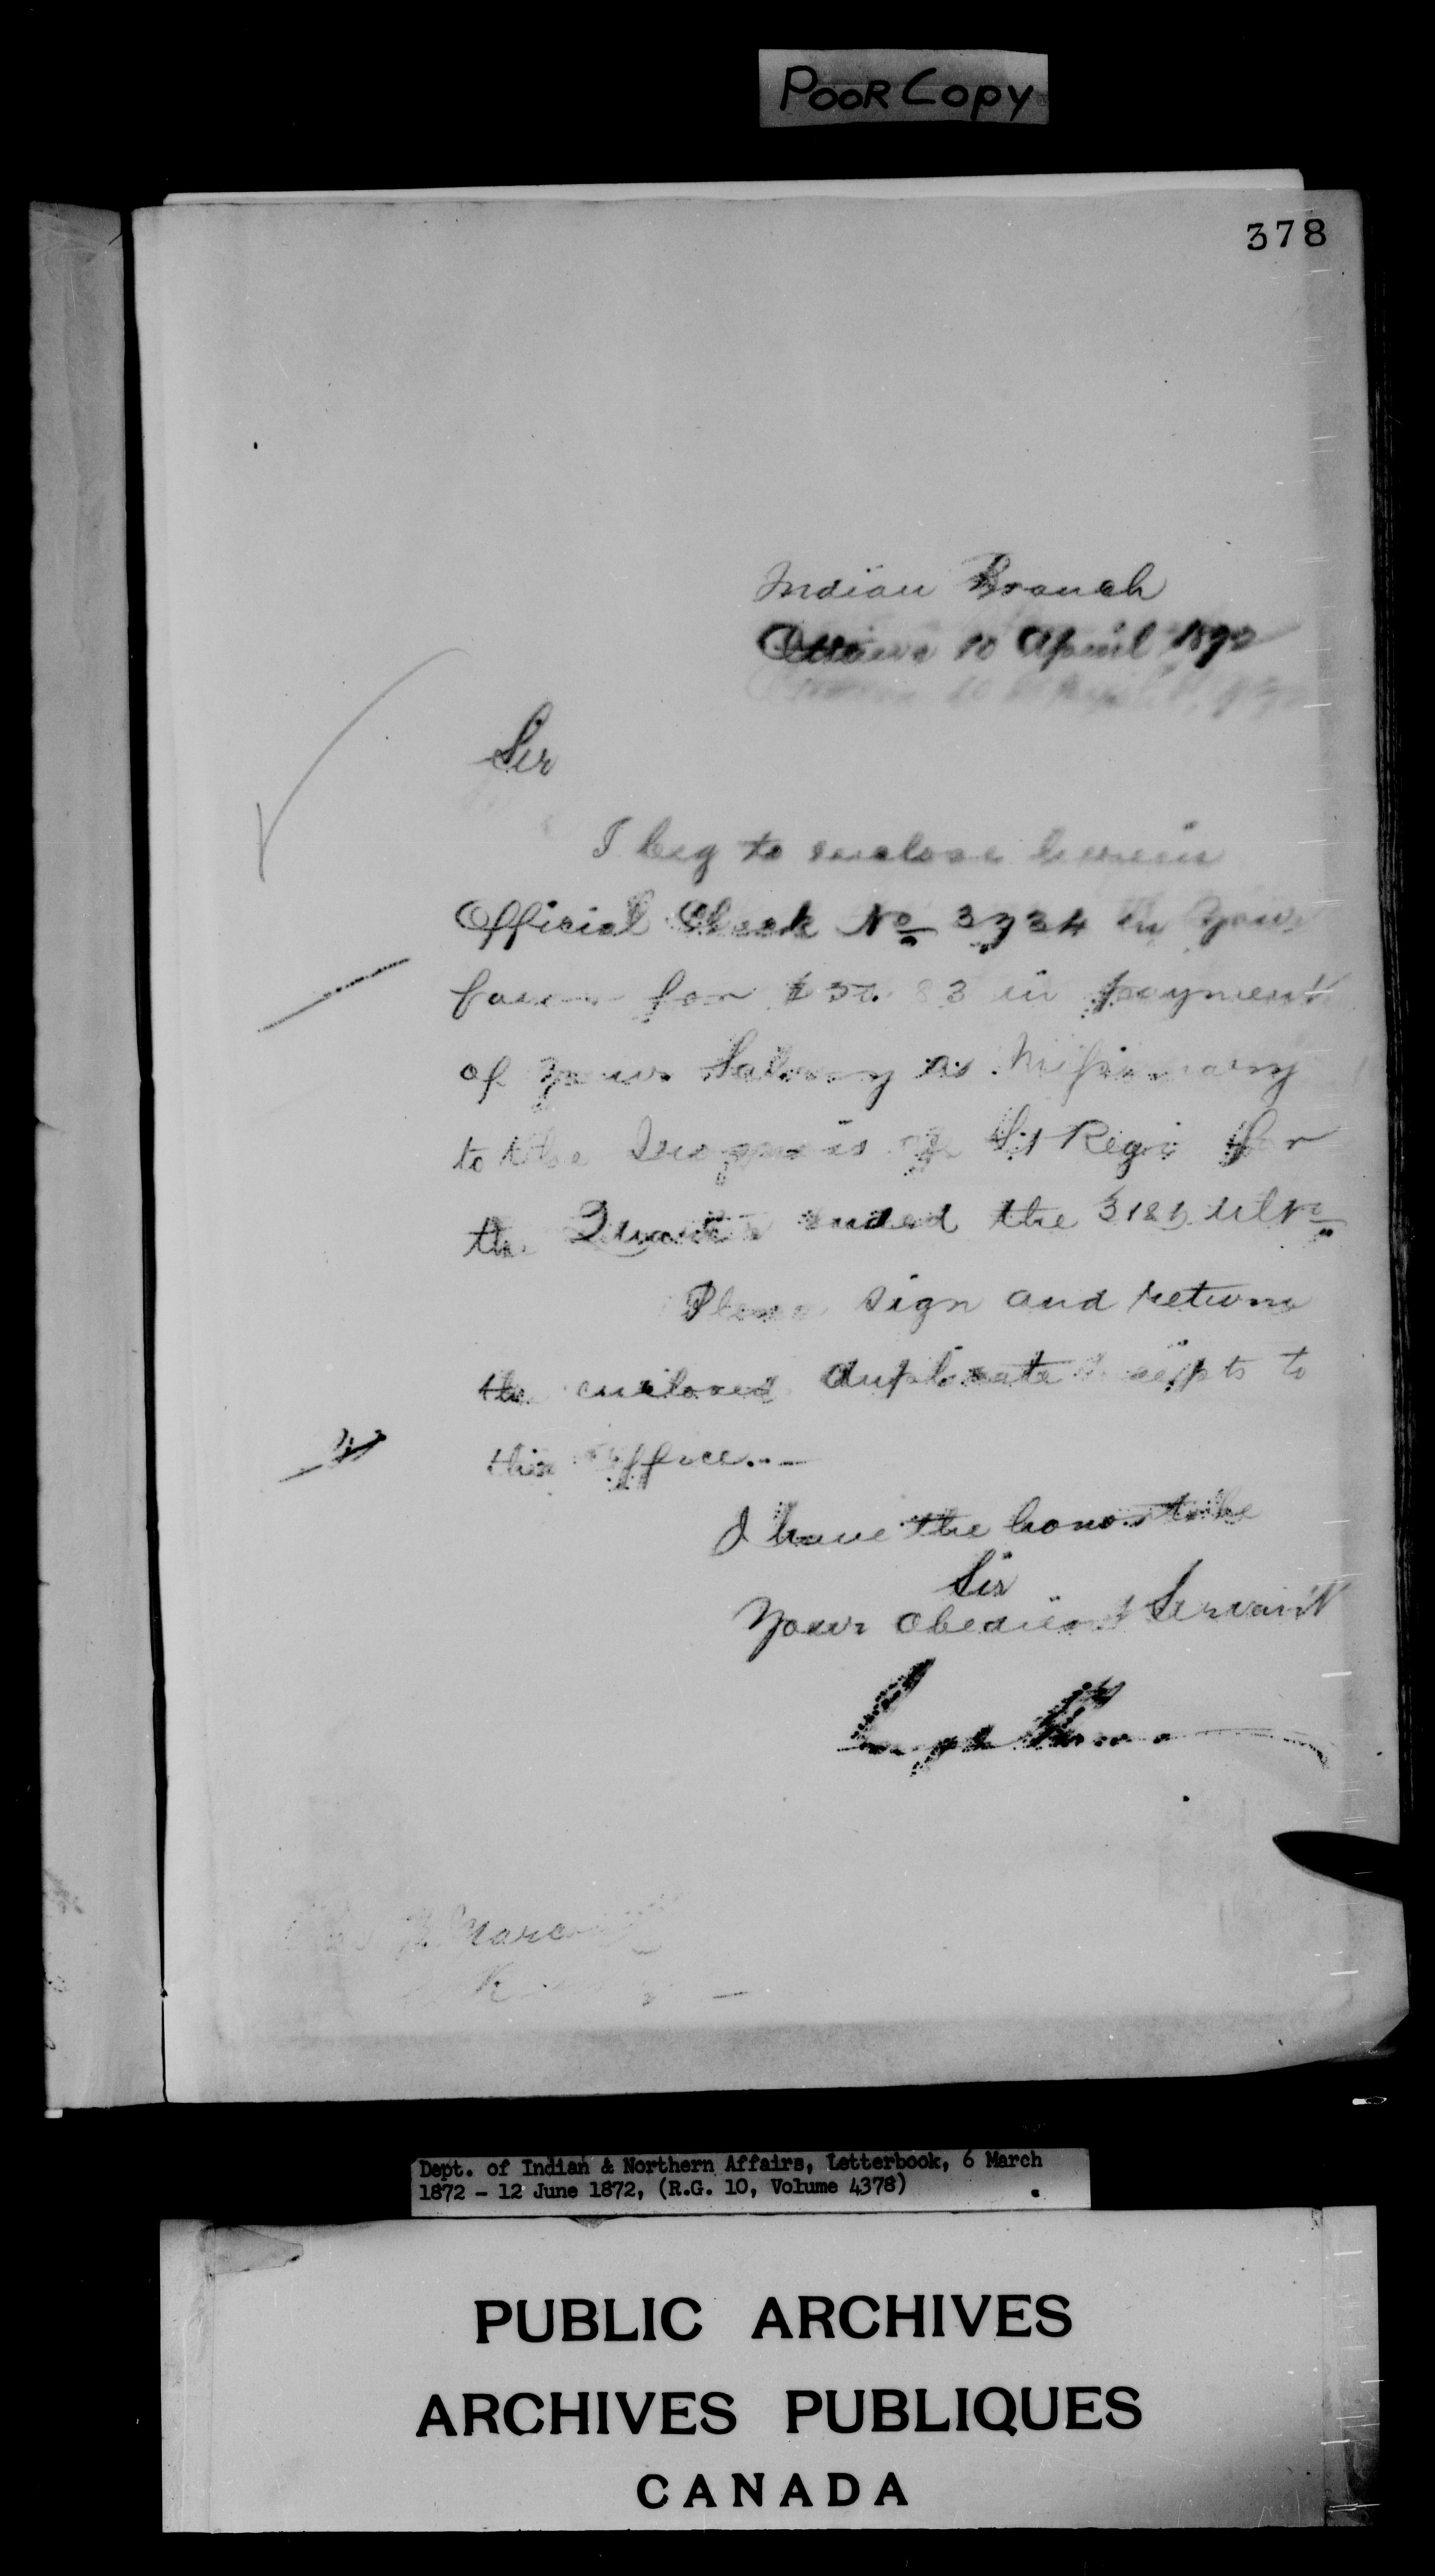 POOR COPY
378
Indian Branch
Ottawa 10 April 1872
Sir
I beg to enclose herein
Official Check No 3734 in Your
favor for $50.83 in payment
of your Salary as Missionary
to the Iroquois of St Regis for
the Quarter ended the 31st ulto
Please sign and return
the enclosed duplicate receipts to
this office.-
I have the honor to be
Sir
Your Obedient Servant
Marcoux
Dept. of Indian & Northern Affairs, Letterbook, 6 March
1872 - 12 June 1872, (R.G. 10, Volume 4378)
PUBLIC ARCHIVES
ARCHIVES PUBLIQUES
CANADA